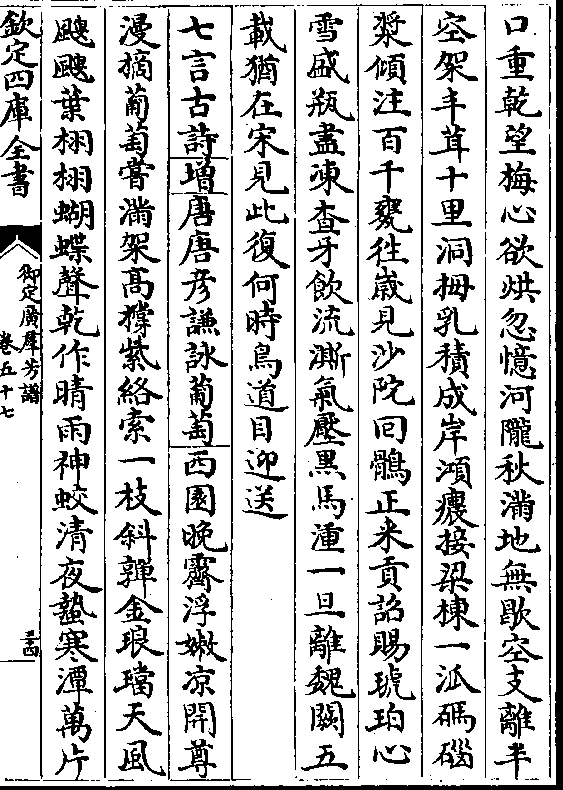 口重乾望梅心欲烘忽憶河隴秋滿地無歇空支離半
空架丰茸十里洞拇乳積成岸湏癭接梁棟一派碼碯
漿傾注百千甕徃歲見沙陀回鶻正来貢詔賜琥珀心
雪盛瓶盡凍查牙飲流澌氣壓黒馬湩一旦離魏闕五
載猶在宋見此復何時鳥道目迎送
七言古詩增唐唐彥謙詠葡萄西園晚霽浮嫩凉開尊
漫摘葡萄嘗滿架髙撐紫絡索一枝斜嚲金琅璫天風
飀飀葉栩栩蝴蝶聲乾作晴雨神蛟清夜蟄寒潭萬片
欽定四庫全書
御定廣羣芳譜
卷五十七
三十四